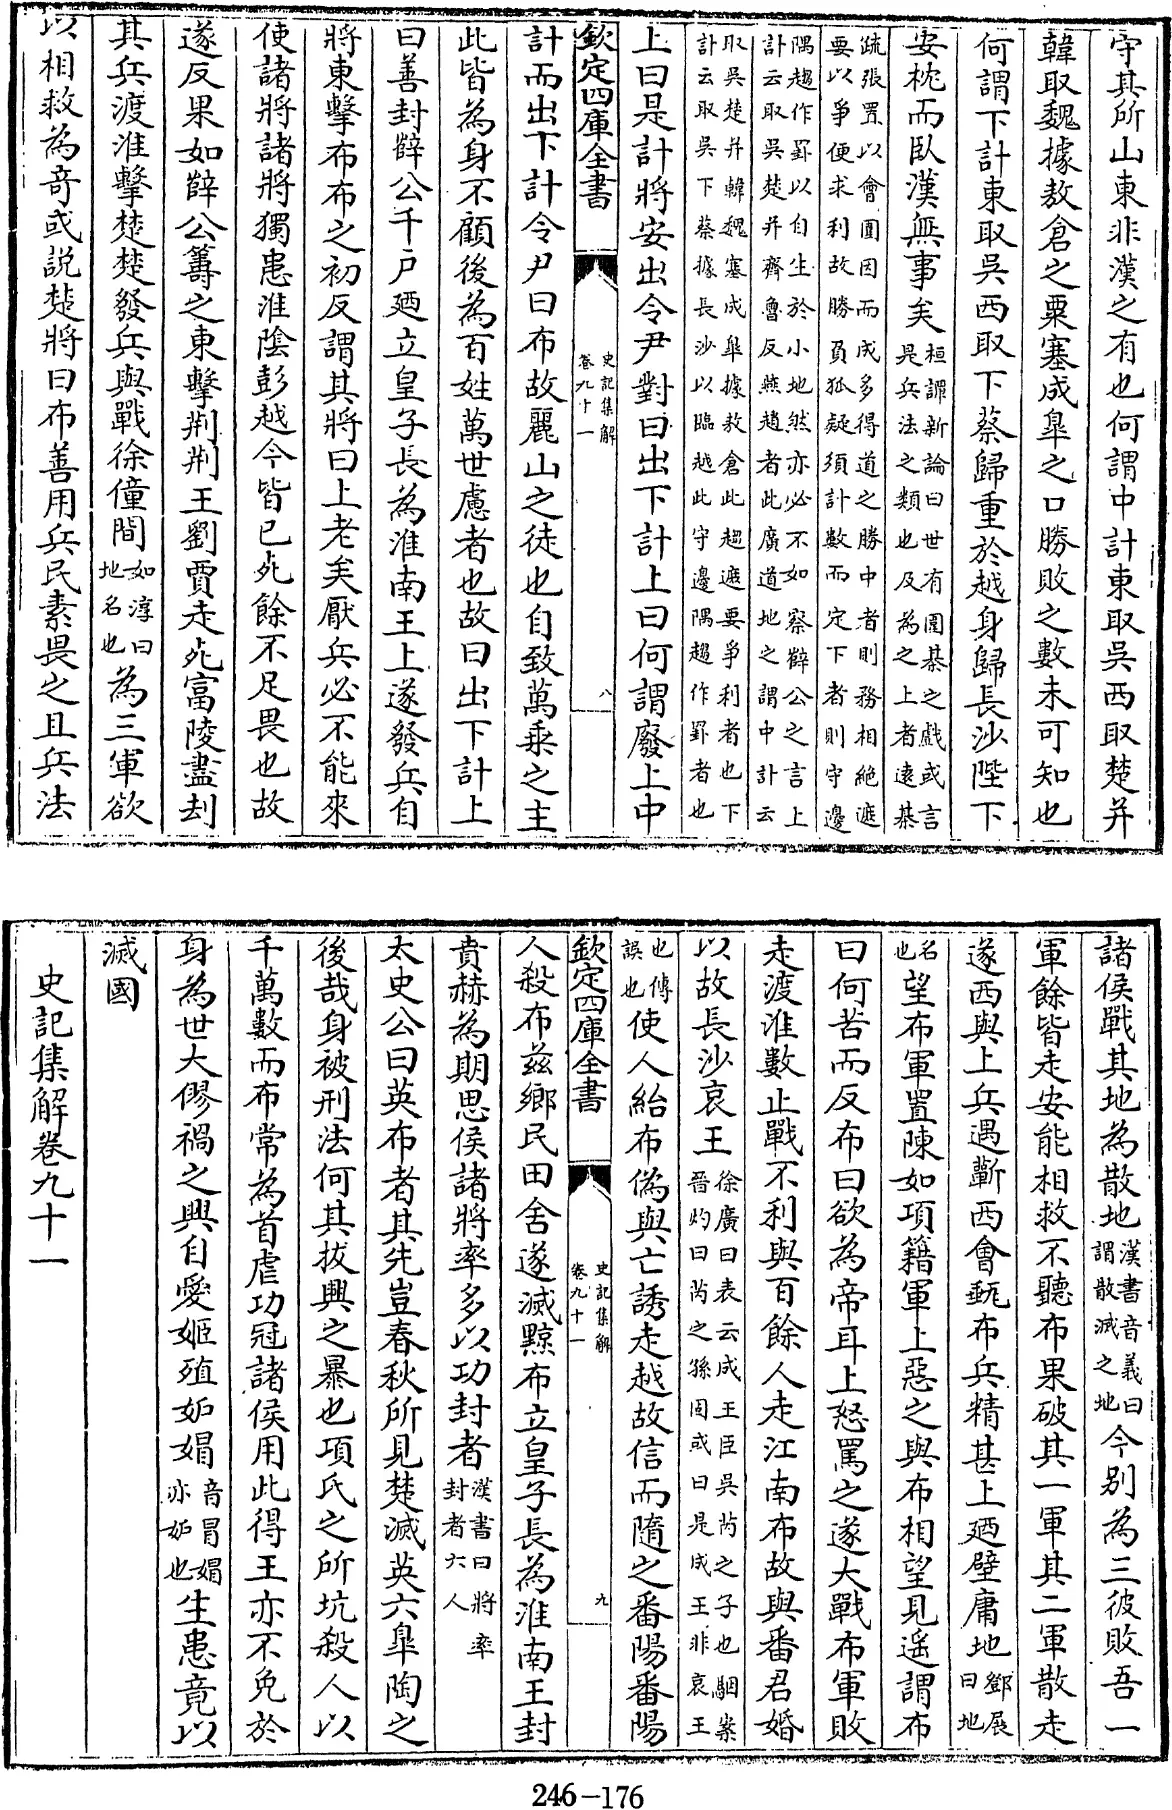 守其所山東非漢之有也何謂中計東取吳西取楚并
韓取魏據敖倉之粟塞成臯之口勝敗之數未可知也
何謂下計東取吳西取下蔡歸重於越身歸長沙陛下
安枕而臥漢無事矣桓譚新論曰世有圍棊之戲或言是兵法之類也及為之上者遠棊
疏張置以會圍因而成多得道之勝中者則務相絕遮要以爭便求利故勝負狐疑須計數而定下者則守邊
隅趨作罫以自生於小地然亦必不如察薛公之言上計云取吳楚并齊魯及燕趙者此廣道地之謂中計云
取吳楚并韓魏塞成臯據敖倉此趨遮要爭利者也下計云取吳下蔡據長沙以臨越此守邊隅趨作罫者也
上曰是計將安出令尹對曰出下計上曰何謂廢上中
欽定四庫全書 史記集解 卷九十一 八
計而出下計令尹曰布故麗山之徒也自致萬乘之主
此皆為身不顧後為百姓萬世慮者也故曰出下計上
曰善封薛公千戶廼立皇子長為淮南王上遂發兵自
將東擊布布之初反謂其將曰上老矣厭兵必不能來
使諸將諸將獨患淮陰彭越今皆已死餘不足畏也故
遂反果如薛公籌之東擊荆荆王劉賈走死富陵盡刦
其兵渡淮擊楚楚發兵與戰徐僮間如淳曰地名也為三軍欲
以相救為奇或説楚將曰布善用兵民素畏之且兵法
諸侯戰其地為散地漢書音義曰謂散滅之地今別為三彼敗吾一
軍餘皆走安能相救不聽布果破其一軍其二軍散走
遂西與上兵遇蘄西會甀布兵精甚上廼壁庸地鄧展曰地
名也望布軍置陳如項籍軍上惡之與布相望見遥謂布
曰何苦而反布曰欲為帝耳上怒罵之遂大戰布軍敗
走渡淮數止戰不利與百餘人走江南布故與番君婚
以故長沙哀王徐廣曰表云成王臣吳芮之子也駰案晉灼曰芮之孫固或曰是成王非哀王
也傳誤也使人紿布偽與亡誘走越故信而隨之番陽番陽
欽定四庫全書 史記集解 卷九十一 九
人殺布茲鄉民田舍遂滅黥布立皇子長為淮南王封
賁赫為期思侯諸將率多以功封者漢書曰將率封者六人
太史公曰英布者其先豈春秋所見楚滅英六臯陶之
後哉身被刑法何其拔興之暴也項氏之所坑殺人以
千萬數而布常為首虐功冠諸侯用此得王亦不免於
身為世大僇禍之興自愛姬殖妬媢音冒媢亦妬也生患竟以
滅國
史記集解卷九十一
246-176